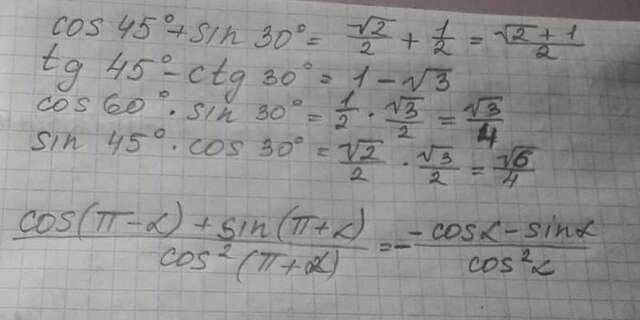 cos 45° + sin 30° = √2/2 + 1/2 = (√2 + 1)/2
tg 45° - ctg 30° = 1 - √3
cos 60° · sin 30° = 1/2 · √3/2 = √3/4
sin 45° · cos 30° = √2/2 · √3/2 = √6/4
(cos(π-α) + sin(π+α))/(cos²(π+α)) = -(-cosα - sinα)/(cos²α)